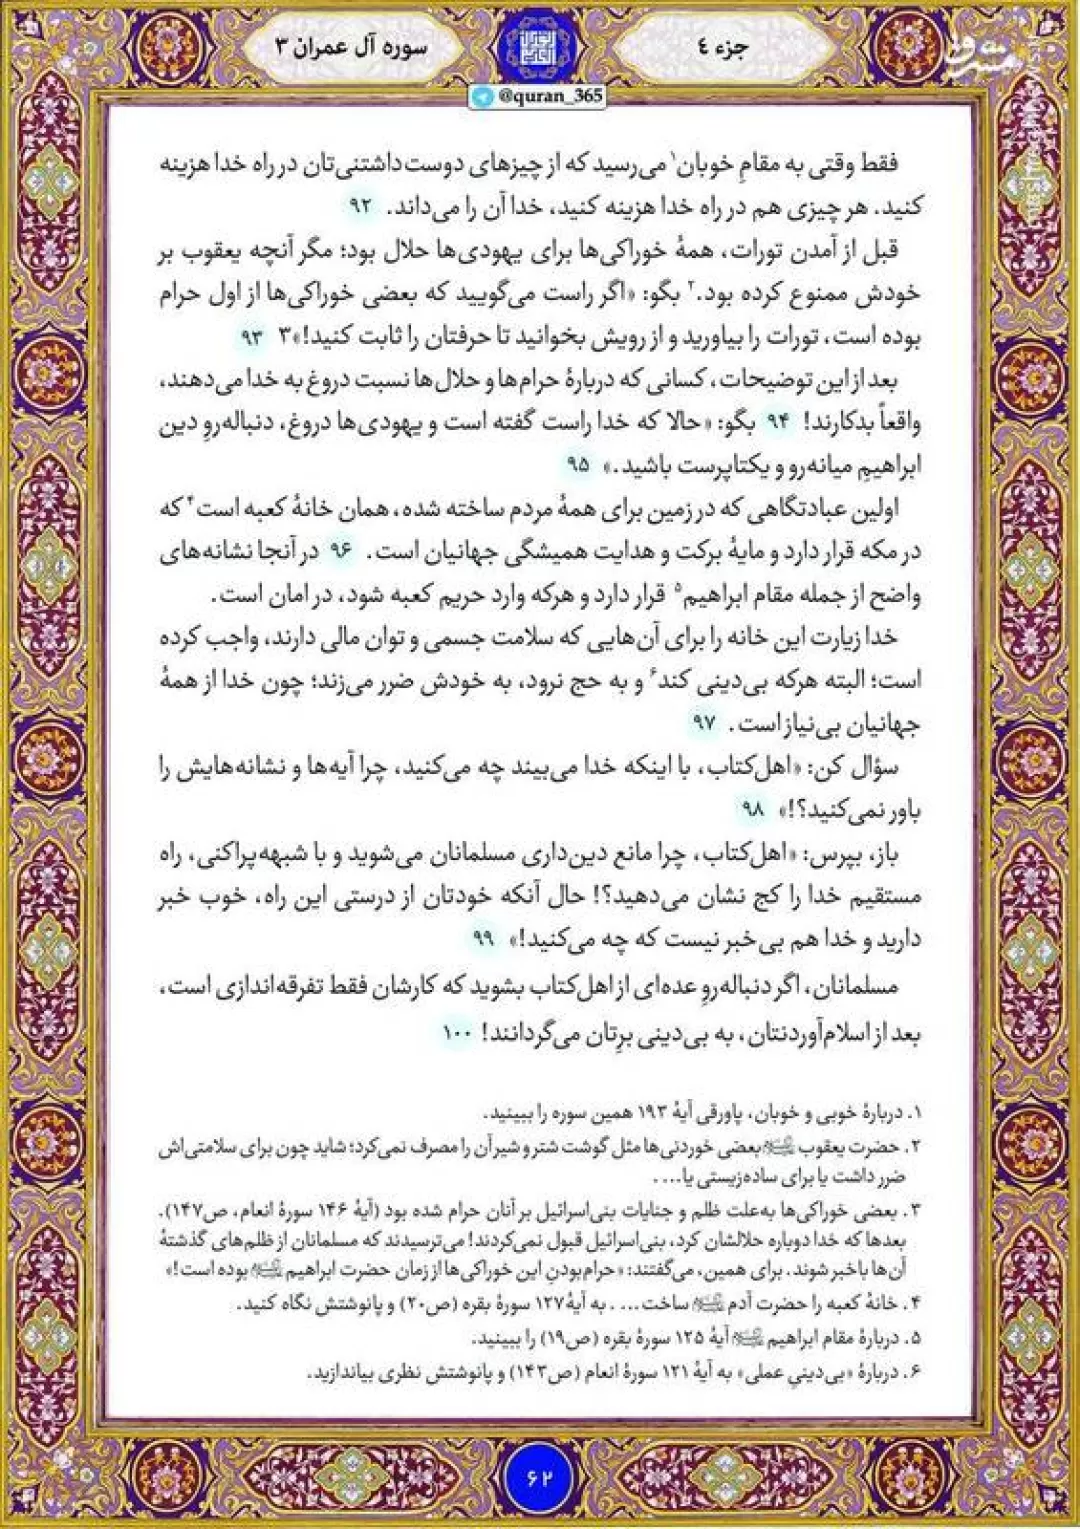 جزء ۴
سوره آل عمران ۳
مشرق
@quran_365
فقط وقتی به مقامِ خوبان۱ می‌رسید که از چیزهای دوست‌داشتنی‌تان در راه خدا هزینه
کنید. هر چیزی هم در راه خدا هزینه کنید، خدا آن را می‌داند. ۹۲
قبل از آمدن تورات، همهٔ خوراکی‌ها برای یهودی‌ها حلال بود؛ مگر آنچه یعقوب بر
خودش ممنوع کرده بود.۲ بگو: «اگر راست می‌گویید که بعضی خوراکی‌ها از اول حرام
بوده است، تورات را بیاورید و از رویش بخوانید تا حرفتان را ثابت کنید!»۳ ۹۳
بعد از این توضیحات، کسانی که دربارهٔ حرام‌ها و حلال‌ها نسبت دروغ به خدا می‌دهند،
واقعاً بدکارند! ۹۴ بگو: «حالا که خدا راست گفته است و یهودی‌ها دروغ، دنباله‌روِ دین
ابراهیمِ میانه‌رو و یکتاپرست باشید.» ۹۵
اولین عبادتگاهی که در زمین برای همهٔ مردم ساخته شده، همان خانهٔ کعبه است۴ که
در مکه قرار دارد و مایهٔ برکت و هدایت همیشگی جهانیان است. ۹۶ در آنجا نشانه‌های
واضح از جمله مقام ابراهیم۵ قرار دارد و هرکه وارد حریم کعبه شود، در امان است.
خدا زیارت این خانه را برای آن‌هایی که سلامت جسمی و توان مالی دارند، واجب کرده
است؛ البته هرکه بی‌دینی کند۶ و به حج نرود، به خودش ضرر می‌زند؛ چون خدا از همهٔ
جهانیان بی‌نیاز است. ۹۷
سؤال کن: «اهل‌کتاب، با اینکه خدا می‌بیند چه می‌کنید، چرا آیه‌ها و نشانه‌هایش را
باور نمی‌کنید؟!» ۹۸
باز، بپرس: «اهل‌کتاب، چرا مانع دین‌داری مسلمانان می‌شوید و با شبهه‌پراکنی، راه
مستقیم خدا را کج نشان می‌دهید؟! حال آنکه خودتان از درستی این راه، خوب خبر
دارید و خدا هم بی‌خبر نیست که چه می‌کنید!» ۹۹
مسلمانان، اگر دنباله‌روِ عده‌ای از اهل‌کتاب بشوید که کارشان فقط تفرقه‌اندازی است،
بعد از اسلام‌آوردنتان، به بی‌دینی برِتان می‌گردانند! ۱۰۰
۱. دربارهٔ خوبی و خوبان، پاورقی آیهٔ ۱۹۳ همین سوره را ببینید.
۲. حضرت یعقوب بعضی خوردنی‌ها مثل گوشت شتر و شیر آن را مصرف نمی‌کرد؛ شاید چون برای سلامتی‌اش
ضرر داشت یا برای ساده‌زیستی یا....
۳. بعضی خوراکی‌ها به‌علت ظلم و جنایات بنی‌اسرائیل بر آنان حرام شده بود (آیهٔ ۱۴۶ سورهٔ انعام، ص۱۴۷).
بعدها که خدا دوباره حلالشان کرد، بنی‌اسرائیل قبول نمی‌کردند! می‌ترسیدند که مسلمانان از ظلم‌های گذشتهٔ
آن‌ها باخبر شوند. برای همین، می‌گفتند: «حرام‌بودنِ این خوراکی‌ها از زمان حضرت ابراهیم بوده است!»
۴. خانهٔ کعبه را حضرت آدم ساخت.... به آیهٔ ۱۲۷ سورهٔ بقره (ص۲۰) و پانوشتش نگاه کنید.
۵. دربارهٔ مقام ابراهیم آیهٔ ۱۲۵ سورهٔ بقره (ص۱۹) را ببینید.
۶. دربارهٔ «بی‌دینیِ عملی» به آیهٔ ۱۲۱ سورهٔ انعام (ص۱۴۳) و پانوشتش نظری بیاندازید.
۶۲